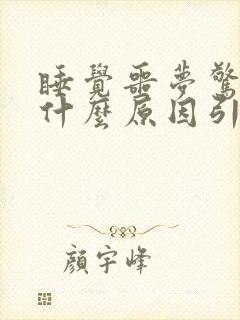 睡覺噩夢驚
什麼原因引
顏宇峰